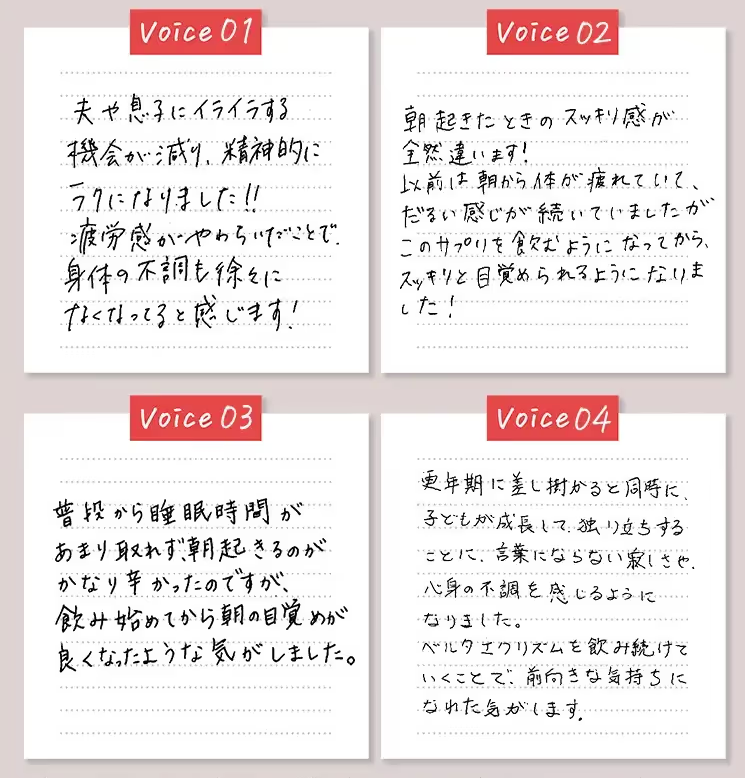 Voice 01
夫や息子にイライラする
機会が減り、精神的に
ラクになりました!!
疲労感がやわらいだことで、
身体の不調も徐々に
なくなってると感じます!
Voice 02
朝起きたときのスッキリ感が
全然違います!
以前は朝から体が疲れていて、
だるい感じが続いていましたが
このサプリを飲むようになってから、
スッキリと目覚められるようになりま
した!
Voice 03
普段から睡眠時間が
あまり取れず、朝起きるのが
かなり辛かったのですが、
飲み始めてから朝の目覚めが
良くなったような気がしました。
Voice 04
更年期に差し掛かると同時に、
子どもが成長して、独り立ちする
ことに、言葉にならない寂しさや、
心身の不調を感じるように
なりました。
ベルタエクリズムを飲み続けて
いくことで、前向きな気持ちに
なれた気がします。